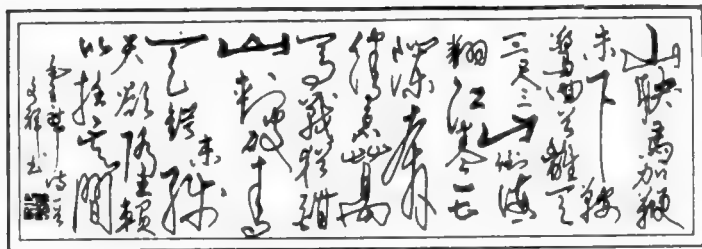 山快馬加鞭
未下鞍
驚回首離天
三尺三山倒海
翻江卷巨
瀾奔
騰急萬
馬戰猶酣
山刺破青
天鍔未殘
天欲墮賴
以拄其間
書